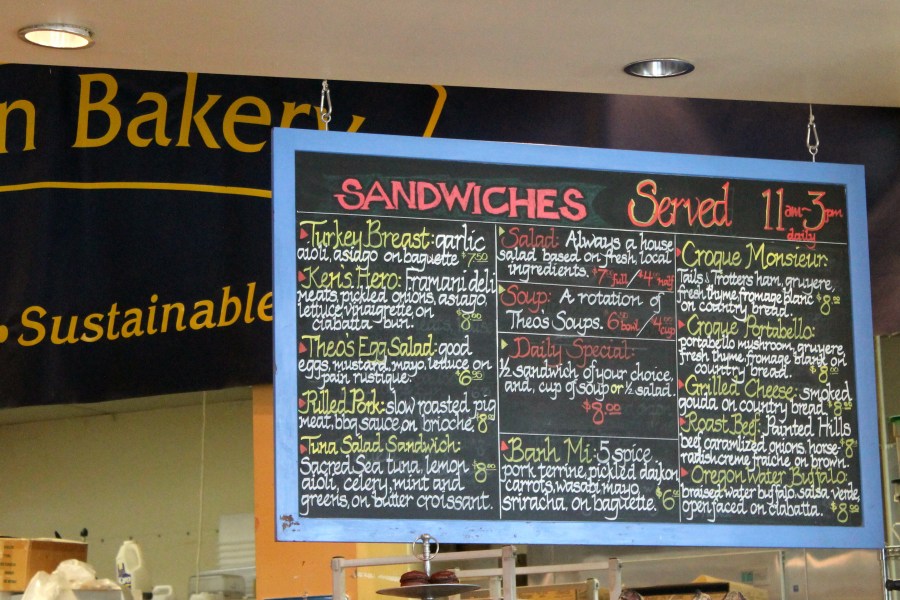 n Bakery
• Sustainable
SANDWICHES Served 11am-3pm
daily
Turkey Breast: garlic
aioli, asiago on baguette $7.50
Ken's Hero: Framani deli
meats, pickled onions, asiago,
lettuce vinaigrette on
ciabatta bun. $8.00
Theo's Egg Salad: good
eggs, mustard, mayo, lettuce on
pain rustique. $6.50
Pulled Pork: slow roasted pig
meat, bbq sauce, on brioche, $8
Tuna Salad Sandwich:
Sacred Sea tuna, lemon $8.00
aioli, celery, mint and
greens, on butter croissant.
Salad: Always a house
salad based on fresh, local
ingredients. $7.50 full / $4.50 half
Soup: A rotation of
Theo's Soups. 6.50 bowl / $4.00 cup
Daily Special:
1/2 sandwich of your choice,
and, cup of soup or 1/2 salad.
$8.00
Banh Mi: 5 spice,
pork terrine, pickled daikon
carrots, wasabi mayo,
sriracha, on baguette. $6.50
Croque Monsieur:
Tails & Trotters ham, gruyere,
fresh thyme, fromage blanc
on country bread. $8.00
Croque Portabello:
portabello mushroom, gruyere,
fresh thyme, fromage blanc on
country bread. $8.00
Grilled Cheese: smoked
gouda on country bread. $8.00
Roast Beef: Painted Hills
beef, caramlized onions, horse-
radish creme fraiche on brown. $8
Oregon Water Buffalo:
braised water buffalo, salsa verde,
openfaced on ciabatta. $8.00